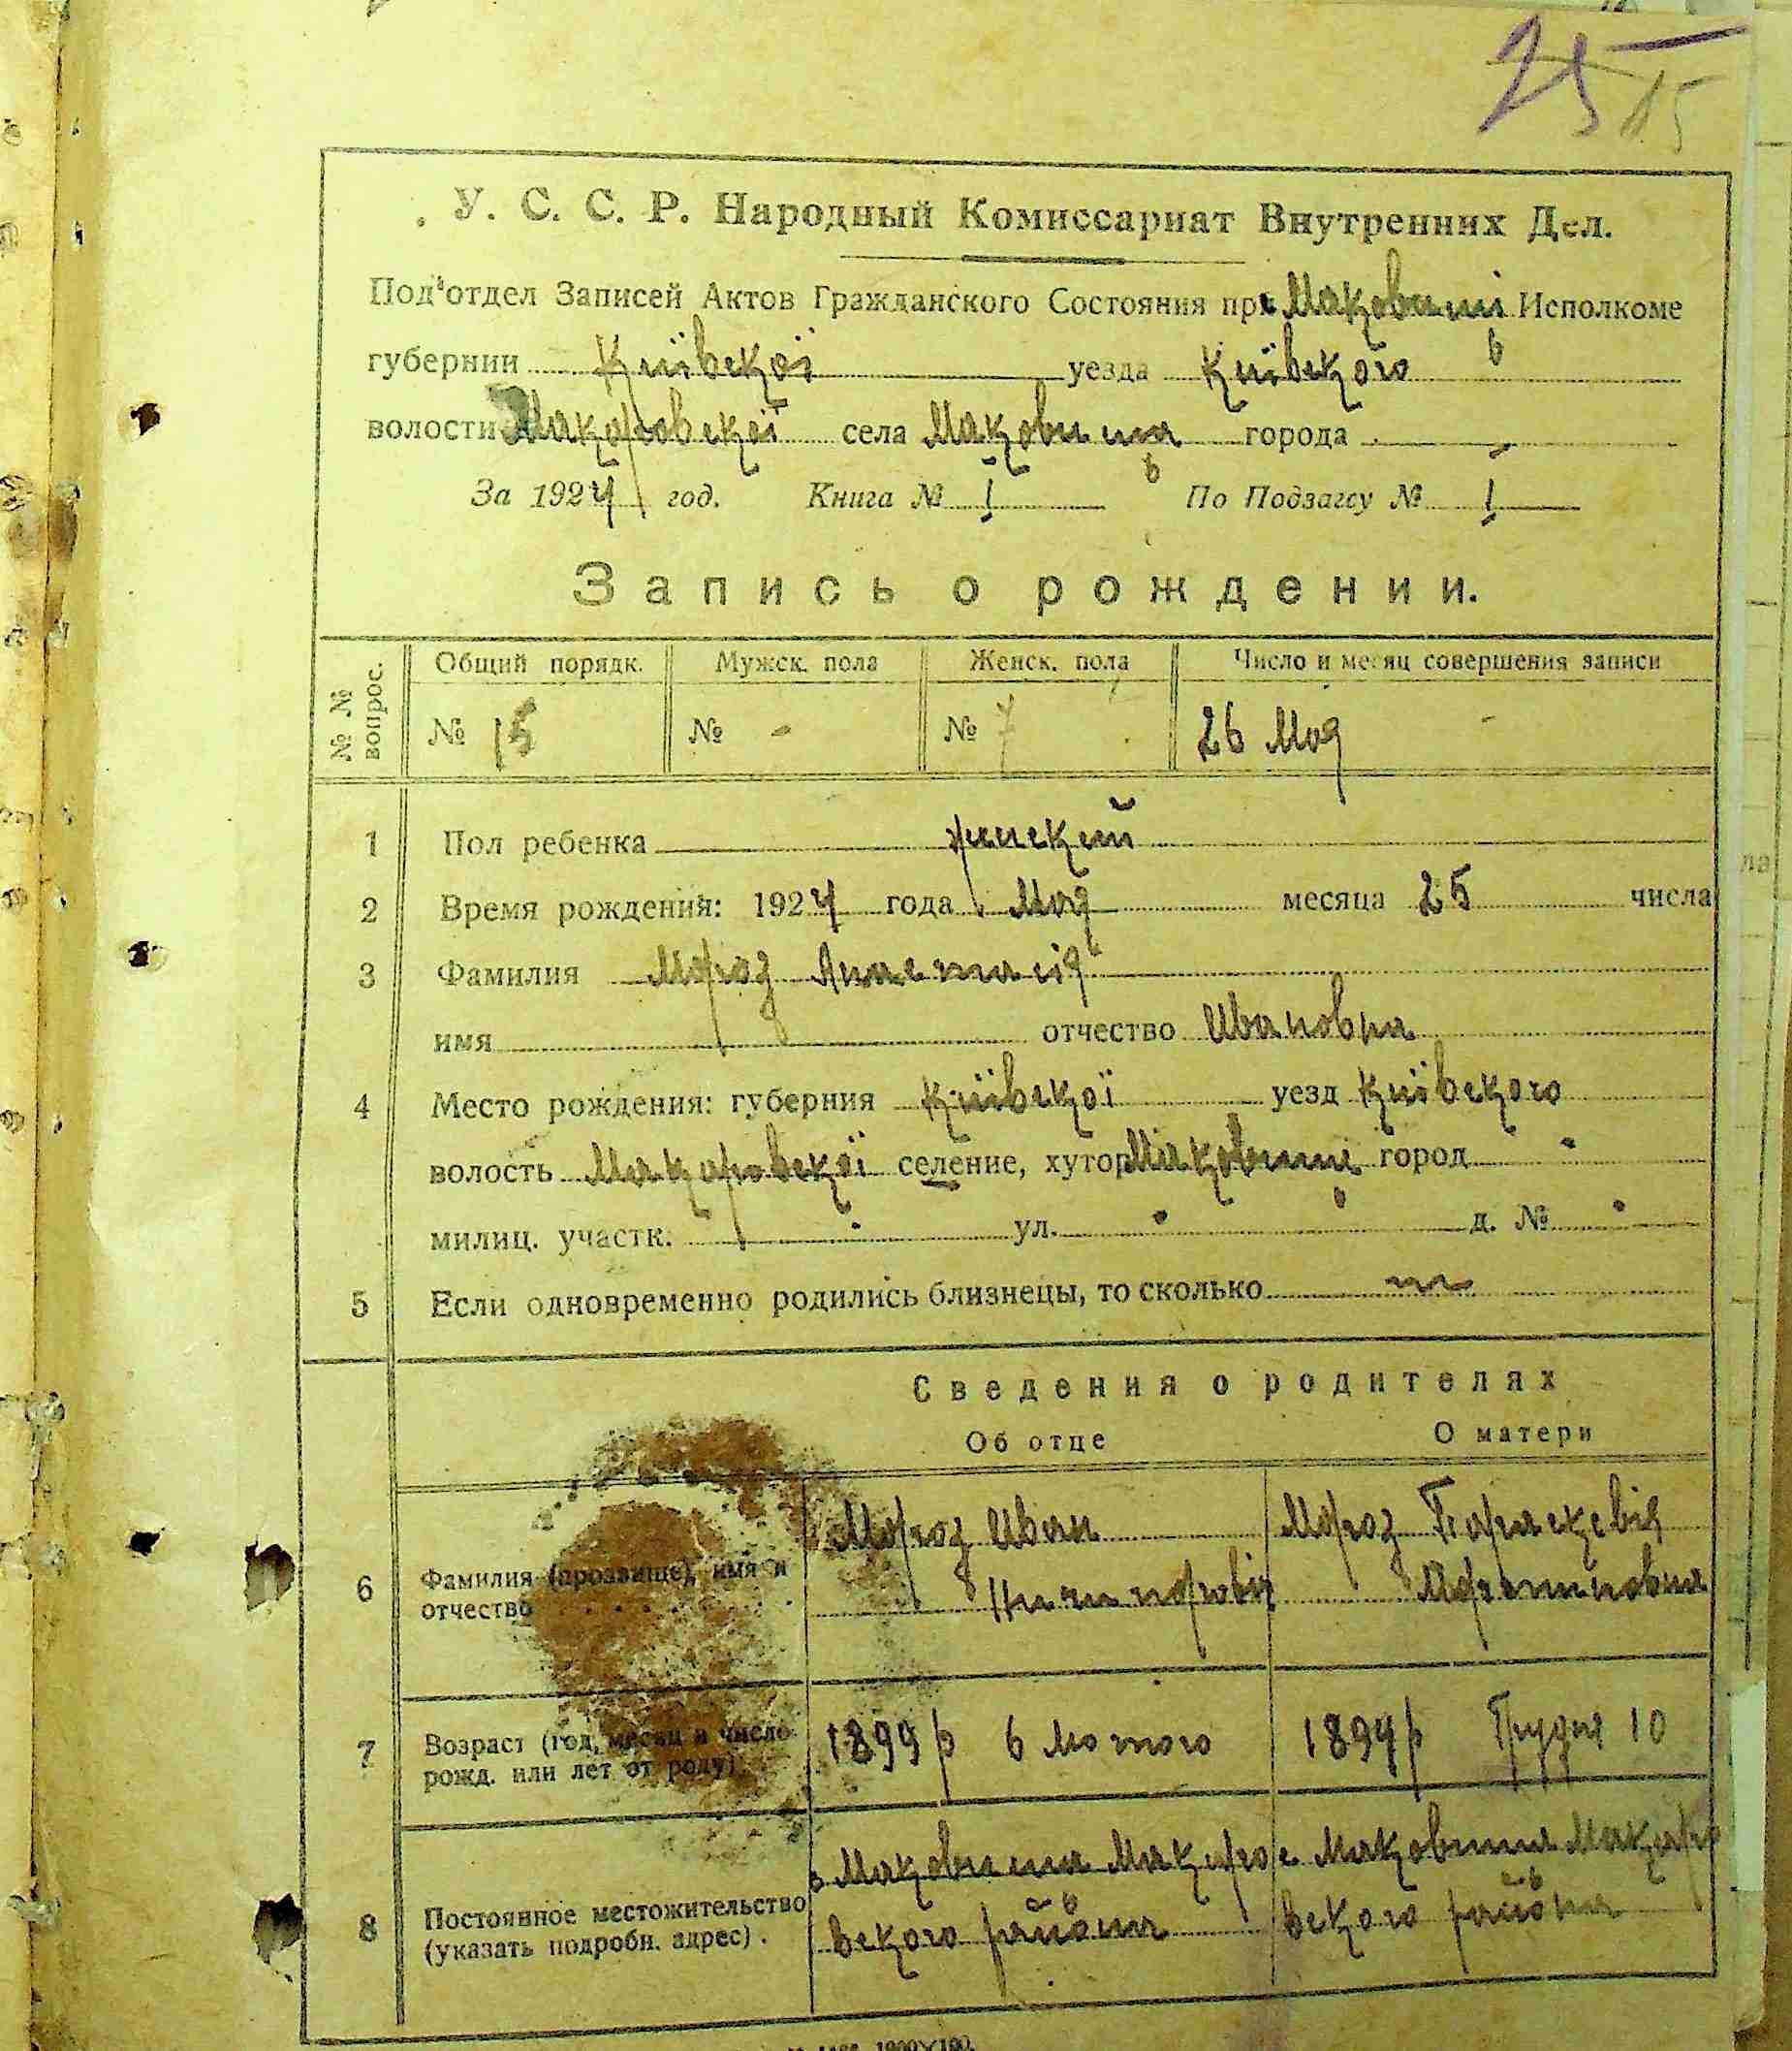 25
15
У. С. С. Р. Народный Комиссариат Внутренних Дел.
Под'отдел Записей Актов Гражданского Состояния при Маковищі Исполкоме
губернии Київскої уезда Київского
волости Макаровскої села Маковища города -
За 1924 год. Книга № 1 По Подзагсу № 1
Запись о рождении.
№№ вопрос. Общий порядк. Мужск. пола Женск. пола Число и месяц совершения записи
№ 15 № - № 7 26 Мая
1 Пол ребенка женский
2 Время рождения: 1924 года Мая месяца 25 числа
3 Фамилия Мороз Анастасія
имя отчество Ивановна
4 Место рождения: губерния Київскої уезд Київского
волость Макаровскої селение, хутор Маковище город
милиц. участк. ул. д. №
5 Если одновременно родились близнецы, то сколько
Сведения о родителях
Об отце О матери
6 Фамилия (прозвище), имя и отчество Мороз Иван Ничипорович Мороз Параскевія
7 Возраст (год, месяц и число рожд. или лет от роду) 1899 р 6 Лютого 1899 р Грудня 10
8 Постоянное местожительство (указать подробн. адрес) . с Маковища Макаровского района с Маковища Макаровского района